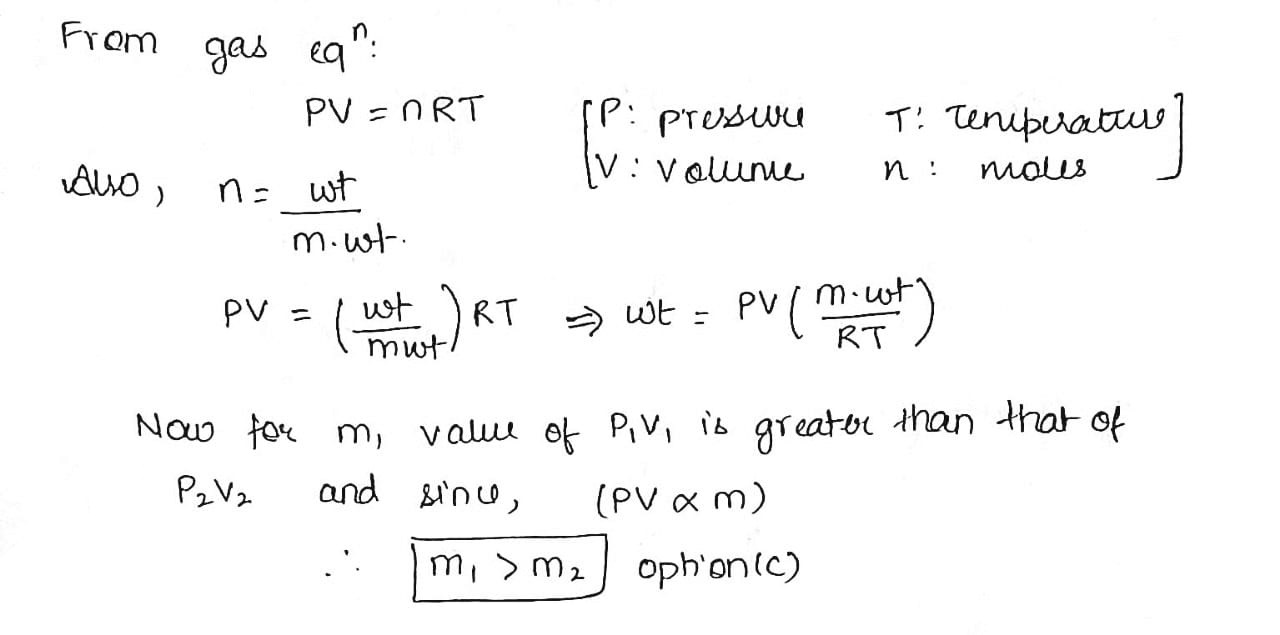 From gas eqⁿ:
PV = nRT [P: pressure T: Temperature]
[V: Volume n: moles]
Also, n = wt / m.wt.
PV = (wt / mwt) RT ⇒ wt = PV (m.wt / RT)
Now for m₁ value of P₁V₁ is greater than that of
P₂V₂ and since, (PV ∝ m)
∴ m₁ > m₂ option(c)